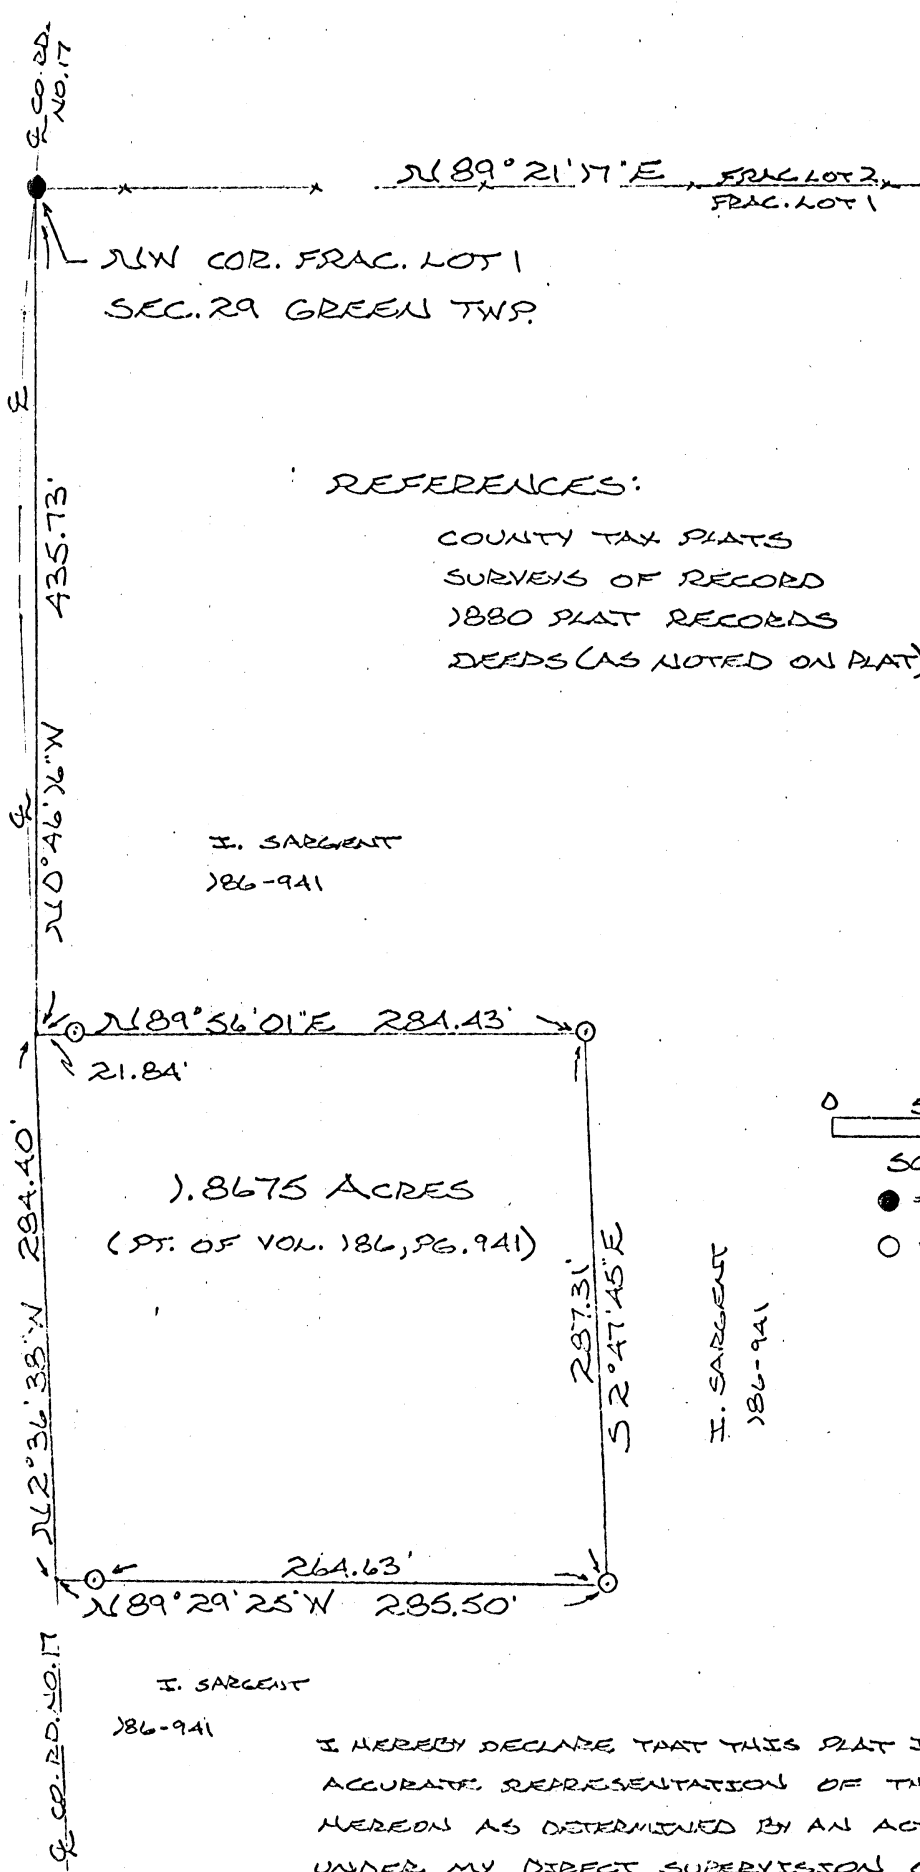 ℄ CO. RD.
NO. 17
N 89° 21' 17" E
FRAC. LOT 2
FRAC. LOT 1
NW COR. FRAC. LOT 1
SEC. 29 GREEN TWP.
℄
435.73'
REFERENCES:
COUNTY TAX PLATS
SURVEYS OF RECORD
1880 PLAT RECORDS
DEEDS (AS NOTED ON PLAT)
N 0° 46' 16" W
℄
I. SARGENT
186-941
N 89° 56' 01" E 284.43'
21.84'
0
1.8675 ACRES
(PT. OF VOL. 186, PG. 941)
N 2° 36' 38" W 284.40'
287.31'
S 2° 47' 45" E
I. SARGENT
186-941
264.63'
N 89° 29' 25" W 285.50'
℄ CO. RD. NO. 17
I. SARGENT
186-941
I HEREBY DECLARE THAT THIS PLAT
ACCURATE REPRESENTATION OF
HEREON AS DETERMINED BY AN
UNDER MY DIRECT SUPERVISION